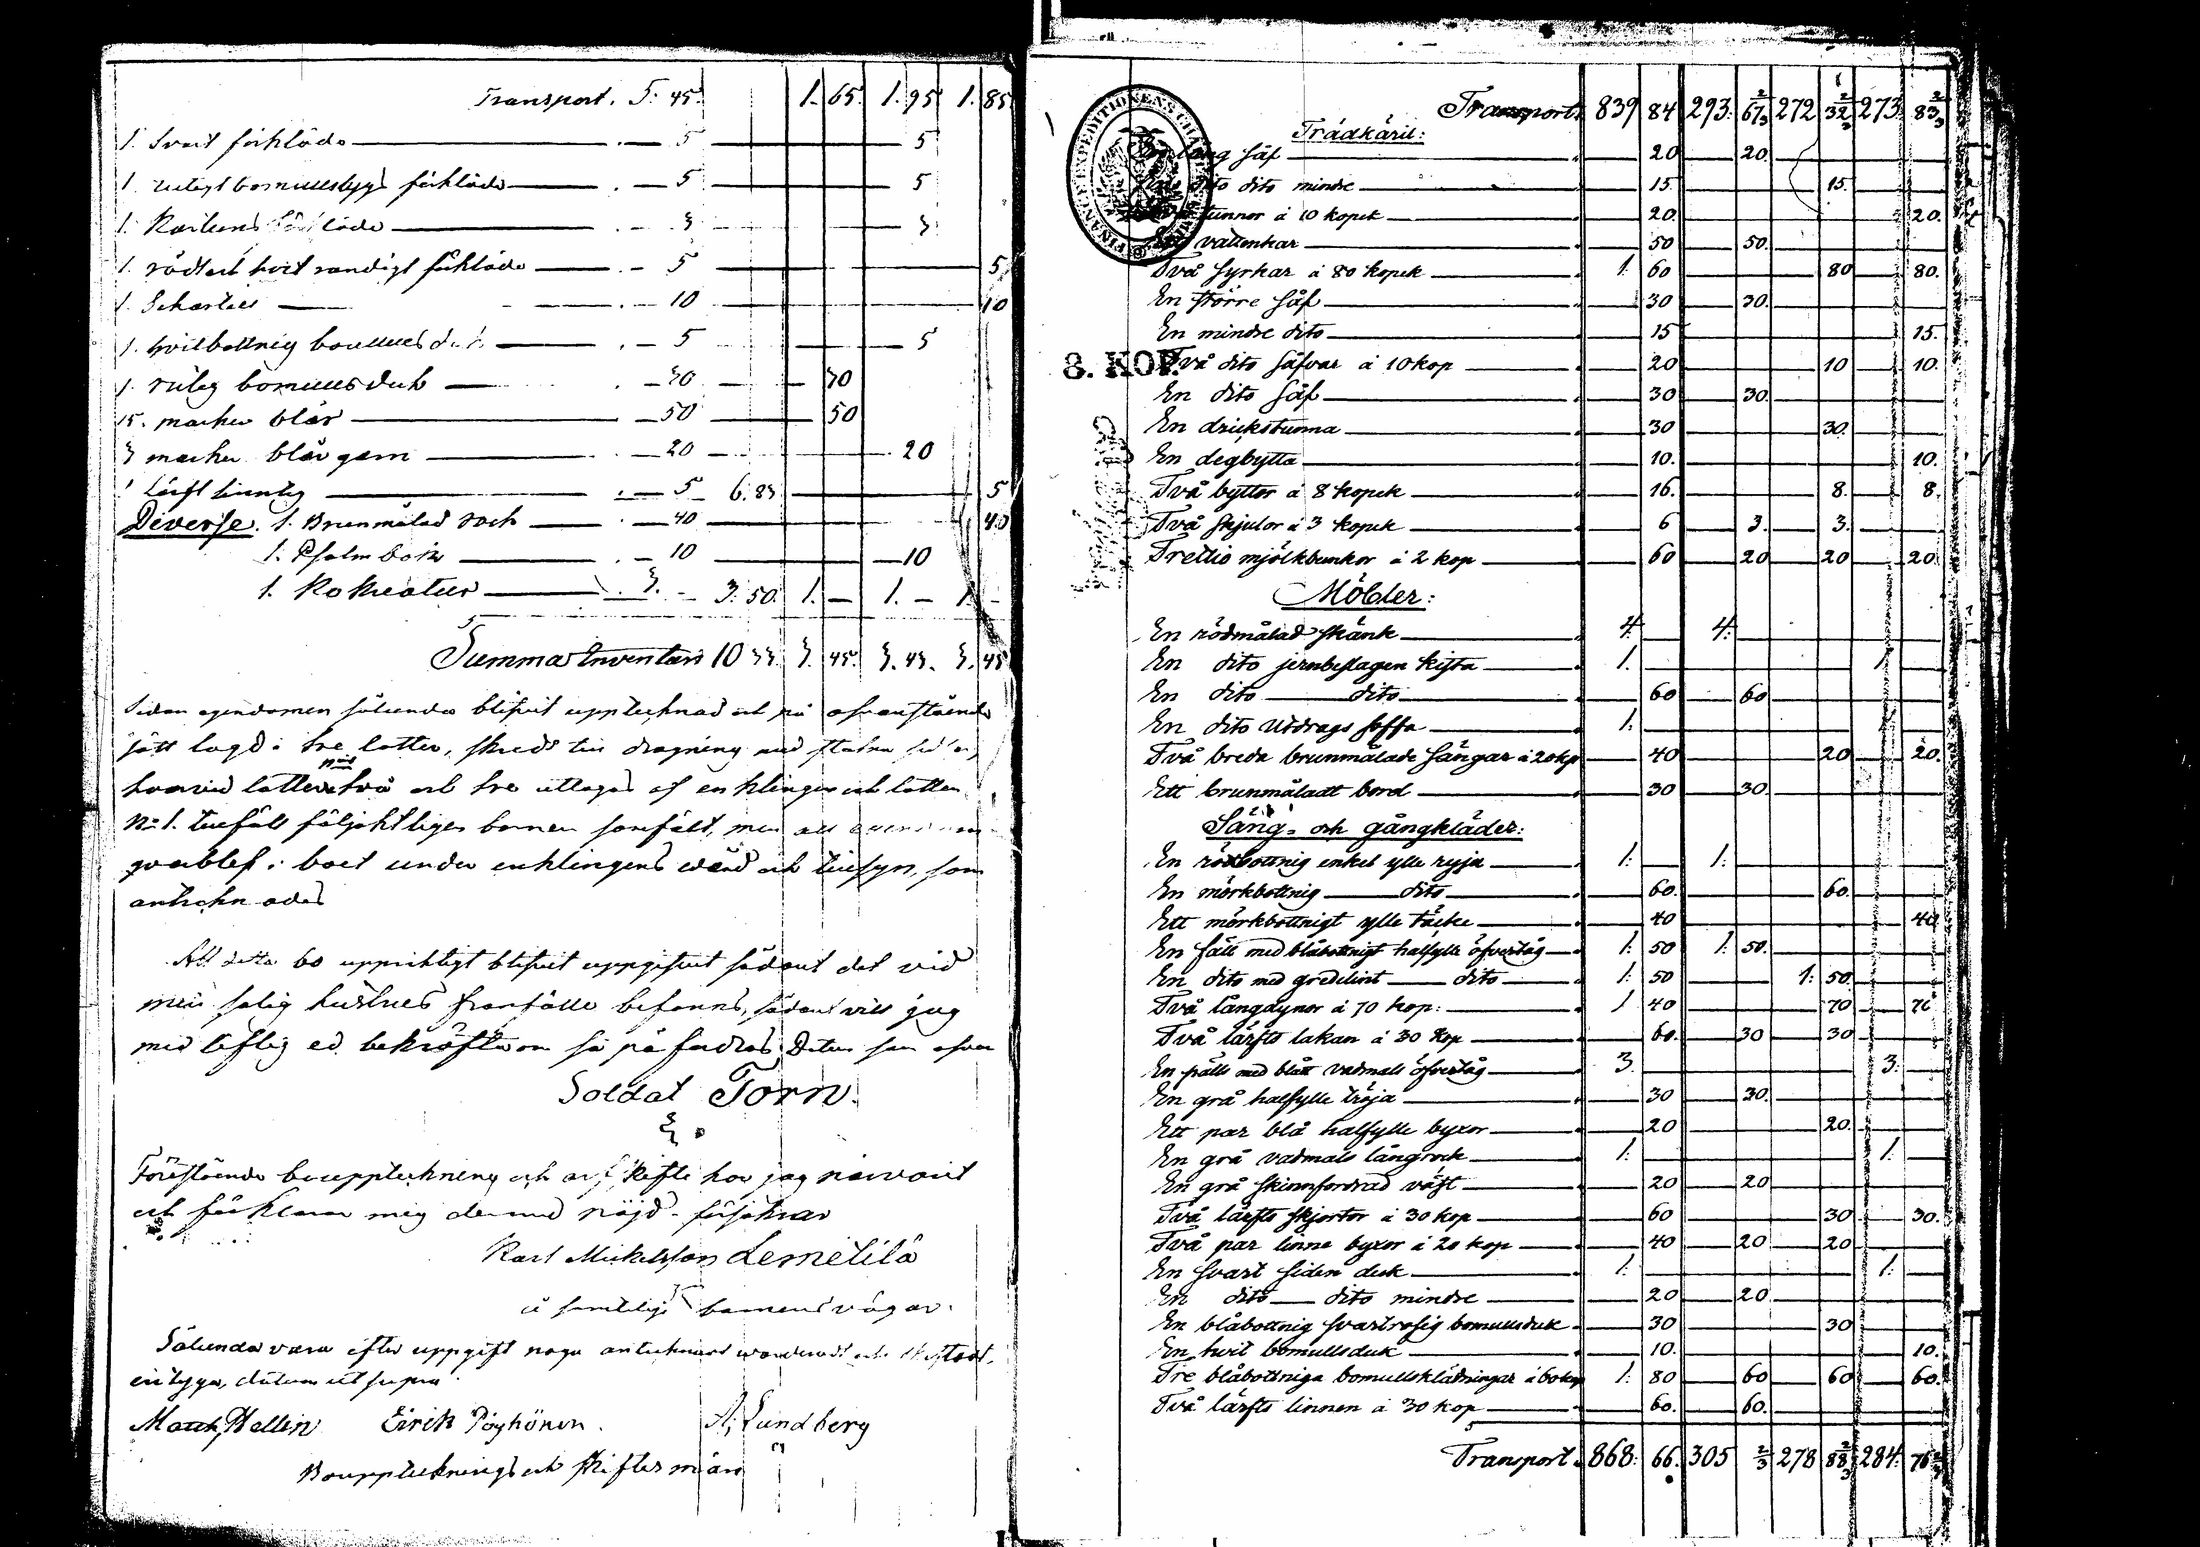 Transport. 5. 45. 1. 65. 1. 95 1. 85
1. Svart förkläde 5 5
1. rutigt bomullstygs förkläde 5 5
1. Kartuns förkläde 3 3
1. rödt och hvit randigt förkläde 5 5
1. 10 10
1. hvitbottnig bomullsduk 5 5
1. rutig bomullsduk 30 30
15. marker blår 50 50
3 marker blårgarn 20 20
1 5 6. 83 5
Diverse. 1. Brunmålad rock 40 40
1. Psalmbok 10 10
1. Ko 3. 3. 50. 1. 1. 1.
Summa Inventari 10 33. 3. 45. 3. 43. 3. 45
Sedan egendomen sålunda blifvit upptecknad och på ofvanstående
sätt lagd i tre lotter, skreds till dragning med
hvarvid lotterne två och tre uttogos af enklingen och lotten
No 1. tillföll följaktligen barnen samfält, men all
qvarblef i boet under enklingens vård och tillsyn, som
antecknades
Att detta bo uppriktigt blifvit uppgifvit sådant det vid
min salig hustrus frånfälle befanns, sådant vill jag
med liflig ed bekräfta om så påfordras Datum som ofvan
Soldat Torn.
Förestående bouppteckning och arfskifte har jag närvarit
och förklarar mig dermed nöjd försäkrar
Karl Mickelsson Lemetilä
å samtliga barnens vägar.
Sålunda vara efter uppgift noga antecknadt värderadt och skiftadt,
intyga, datum ut supra.
Matth Hellin Eirik Pöyhönen. A. Lundberg
Bouppteknings och skiftesmän
FINANCE EXPEDITIONENS
8. KOP.
Transport. 839 84 293. 67 2/3 272 32 2/3 273. 83 2/3
Trädkäril:
En lång såf 20 20
dito dito mindre 15. 15.
tunnor à 10 kopek 20. 20.
vattenkar 50 50.
Två hyrkar à 80 kopek 1. 60 80 80.
En större såf 30 30.
En mindre dito 15 15.
Två dito såfvar à 10 kop 20 10 10.
En dito såf 30 30.
En drickstunna 30 30.
En degbytta 10. 10.
Två byttor à 8 kopek 16. 8. 8.
Två skjulor à 3 kopek 6 3. 3.
Trettio mjölkbunkor à 2 kop 60 20 20 20
Möbler:
En rödmålad skänk 4. 4.
En dito jernbeslagen kista 1. 1
En dito dito 60 60
En dito Utdrags soffa 1. 1.
Två breda brunmålade sängar à 20 kp 40 20 20.
Ett brunmåladt bord 30 30.
Säng- och gångkläder:
En rödbottnig enkel ylle ryja 1: 1:
En mörkbottnig dito 60. 60.
Ett mörkbottnigt ylle täcke 40 40
En fäll med blåbottnigt halfylle öfvertåg 1: 50 1: 50.
En dito med gredelint dito 1: 50 1: 50.
Två långdynor à 70 kop: 1 40 70 70
Två lärfts lakan à 30 kop 60. 30 30
En päls med blått vadmals öfvertåg 3. 3.
En grå halfylle tröja 30 30.
Ett par blå halfylle byxor 20 20.
En grå vadmals långrock 1: 1.
En grå skinnfordrad väst 20 20
Två lärfts skjortor à 30 kop 60 30 30.
Två par linne byxor à 20 kop 40 20 20
En svart siden duk 1: 1.
En dito dito mindre 20 20
En blåbottnig svartrosig bomullsduk 30 30
En hvit bomullsduk 10. 10.
Tre blåbottniga bomullsklädningar à 60 kop 1. 80 60 60 60.
Två lärfts linnen à 30 kop 60. 60.
Transport. 868. 66. 305 2/3 278 88 2/3 284. 76 2/3